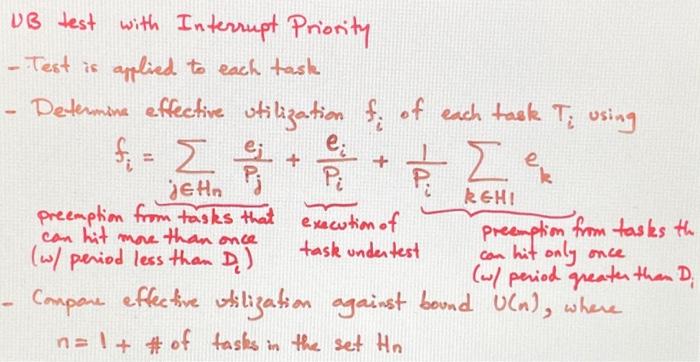 UB test with Interrupt Priority
- Test is applied to each task
- Determine effective utilization f_i of each task T_i using
f_i = Σ_{j∈Hn} e_j/P_j + e_i/P_i + 1/P_i Σ_{k∈H1} e_k
preemption from tasks that can hit more than once (w/ period less than D_i)
execution of task under test
preemption from tasks th can hit only once (w/ period greater than D_i
- Compare effective utilization against bound U(n), where
n = 1 + # of tasks in the set Hn